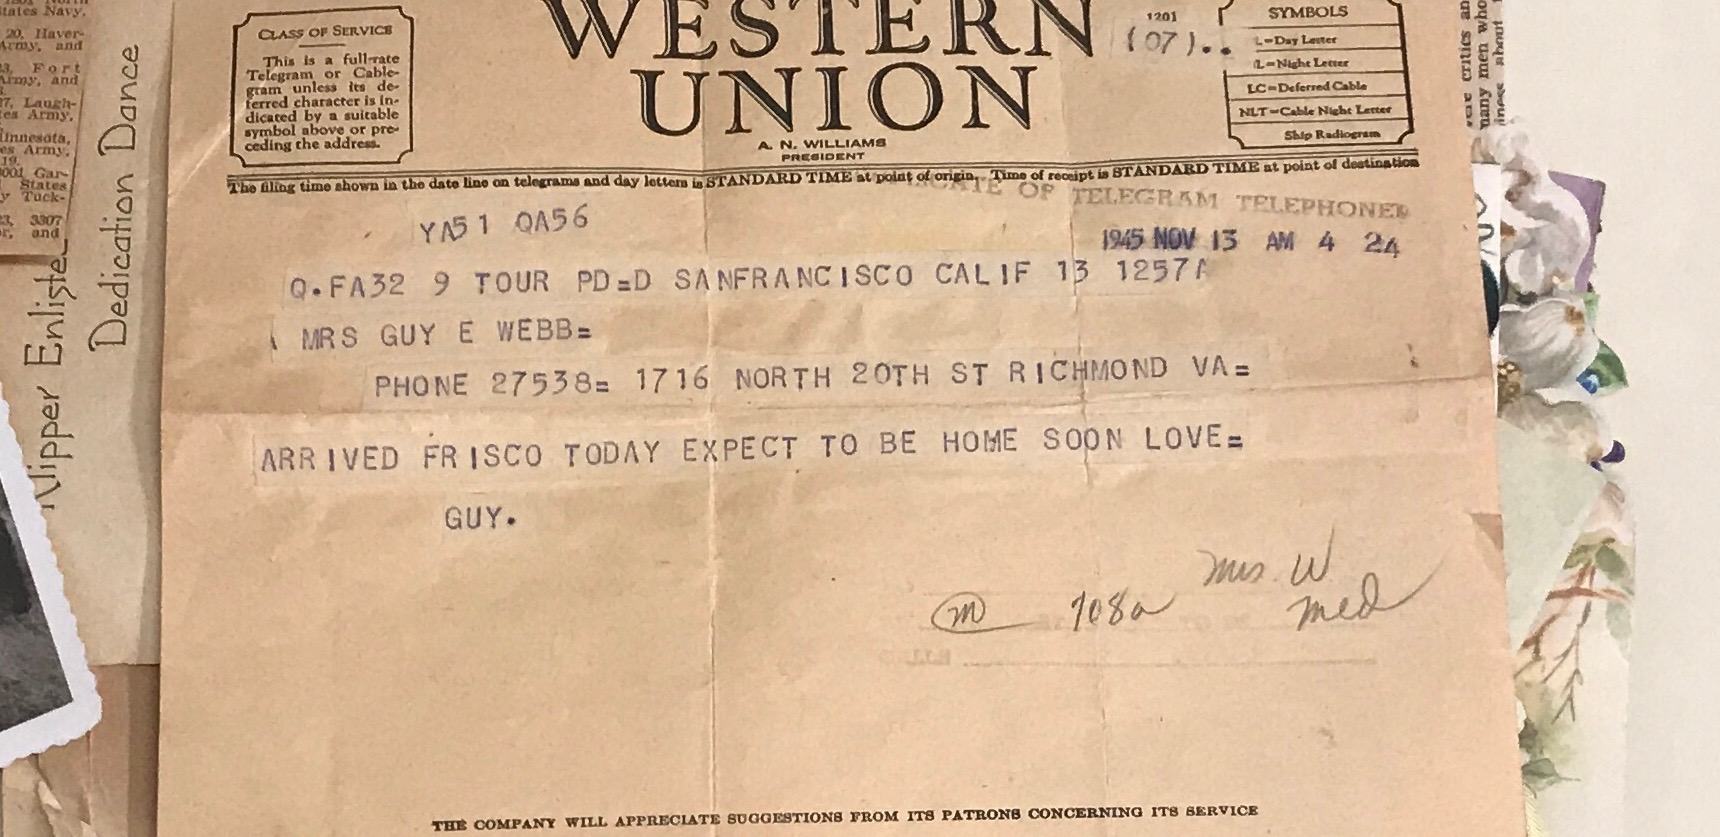 tates Navy,
20, Haver-
Army, and
3, Fort
Army, and
7, Laugh-
es Army,
innesota,
es Army,
19.
001 Gar-
States
y Tuck-
3, 3307
r, and
Klipper Enliste
Dedication Dance
CLASS OF SERVICE
This is a full-rate
Telegram or Cable-
gram unless its de-
ferred character is in-
dicated by a suitable
symbol above or pre-
ceding the address.
WESTERN
UNION
A. N. WILLIAMS
PRESIDENT
1201
(07)..
SYMBOLS
L=Day Letter
NL=Night Letter
LC=Deferred Cable
NLT=Cable Night Letter
Ship Radiogram
The filing time shown in the date line on telegrams and day letters is STANDARD TIME at point of origin. Time of receipt is STANDARD TIME at point of destination
OF TELEGRAM TELEPHONED
YA51 QA56
1945 NOV 13 AM 4 24
Q.FA32 9 TOUR PD=D SANFRANCISCO CALIF 13 1257A
MRS GUY E WEBB=
PHONE 27538= 1716 NORTH 20TH ST RICHMOND VA=
ARRIVED FRISCO TODAY EXPECT TO BE HOME SOON LOVE=
GUY.
Mrs. W
m 708a med
THE COMPANY WILL APPRECIATE SUGGESTIONS FROM ITS PATRONS CONCERNING ITS SERVICE
critics an
many men who
iness about